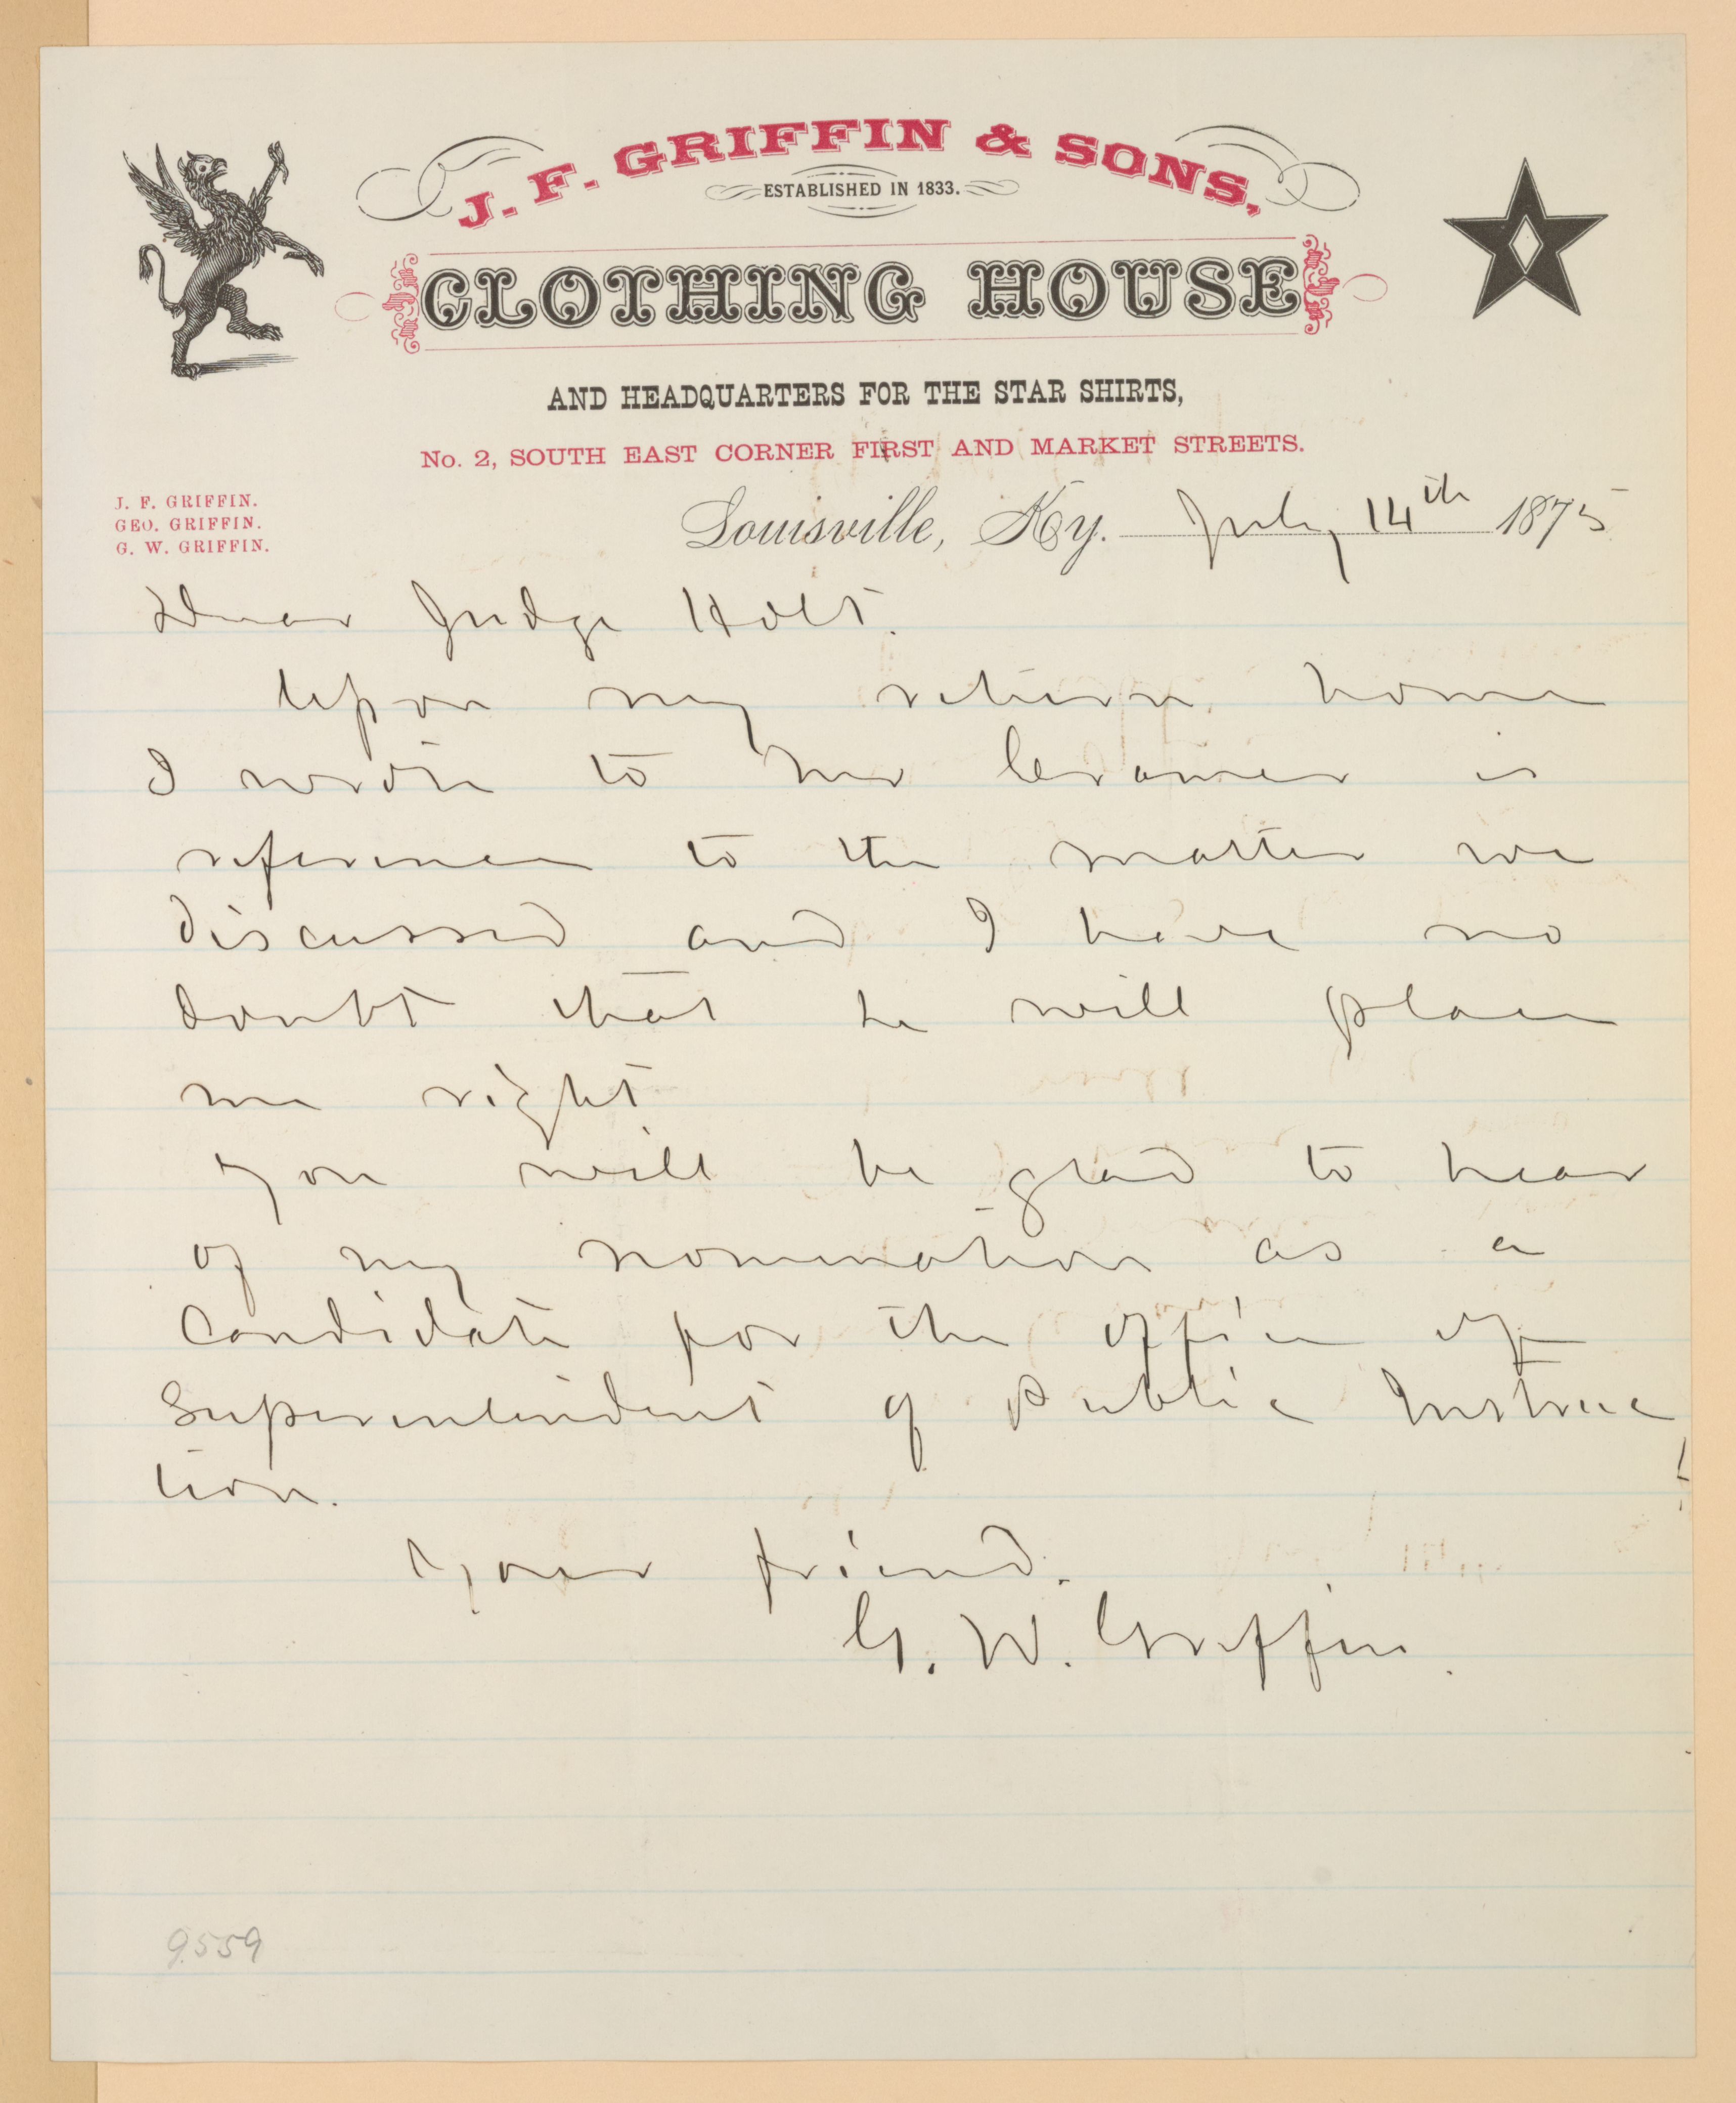 J. F. GRIFFIN & SONS,
ESTABLISHED IN 1833.
CLOTHING HOUSE
AND HEADQUARTERS FOR THE STAR SHIRTS,
No. 2, SOUTH EAST CORNER FIRST AND MARKET STREETS.
J. F. GRIFFIN.
GEO. GRIFFIN.
G. W. GRIFFIN.
Louisville, Ky. July 14th 1875
Dear Judge Holt.
Upon my return home
I wrote to Mr Cramer in
reference to the matter we
discussed and I have no
doubt that he will place
me right
You will be glad to hear
of my nomination as a
Candidate for the office of
Superintendent of Public Instruc
tion.
Your friend.
G. W. Griffin.
9559